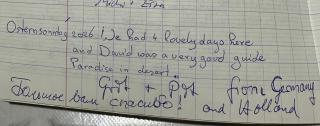 Ostersonntag 2026! We had 4 lovely days here
and David was a very good guide
Paradise in desert..
Gist + Piet from Germany
Большое вам спасибо! and Holland